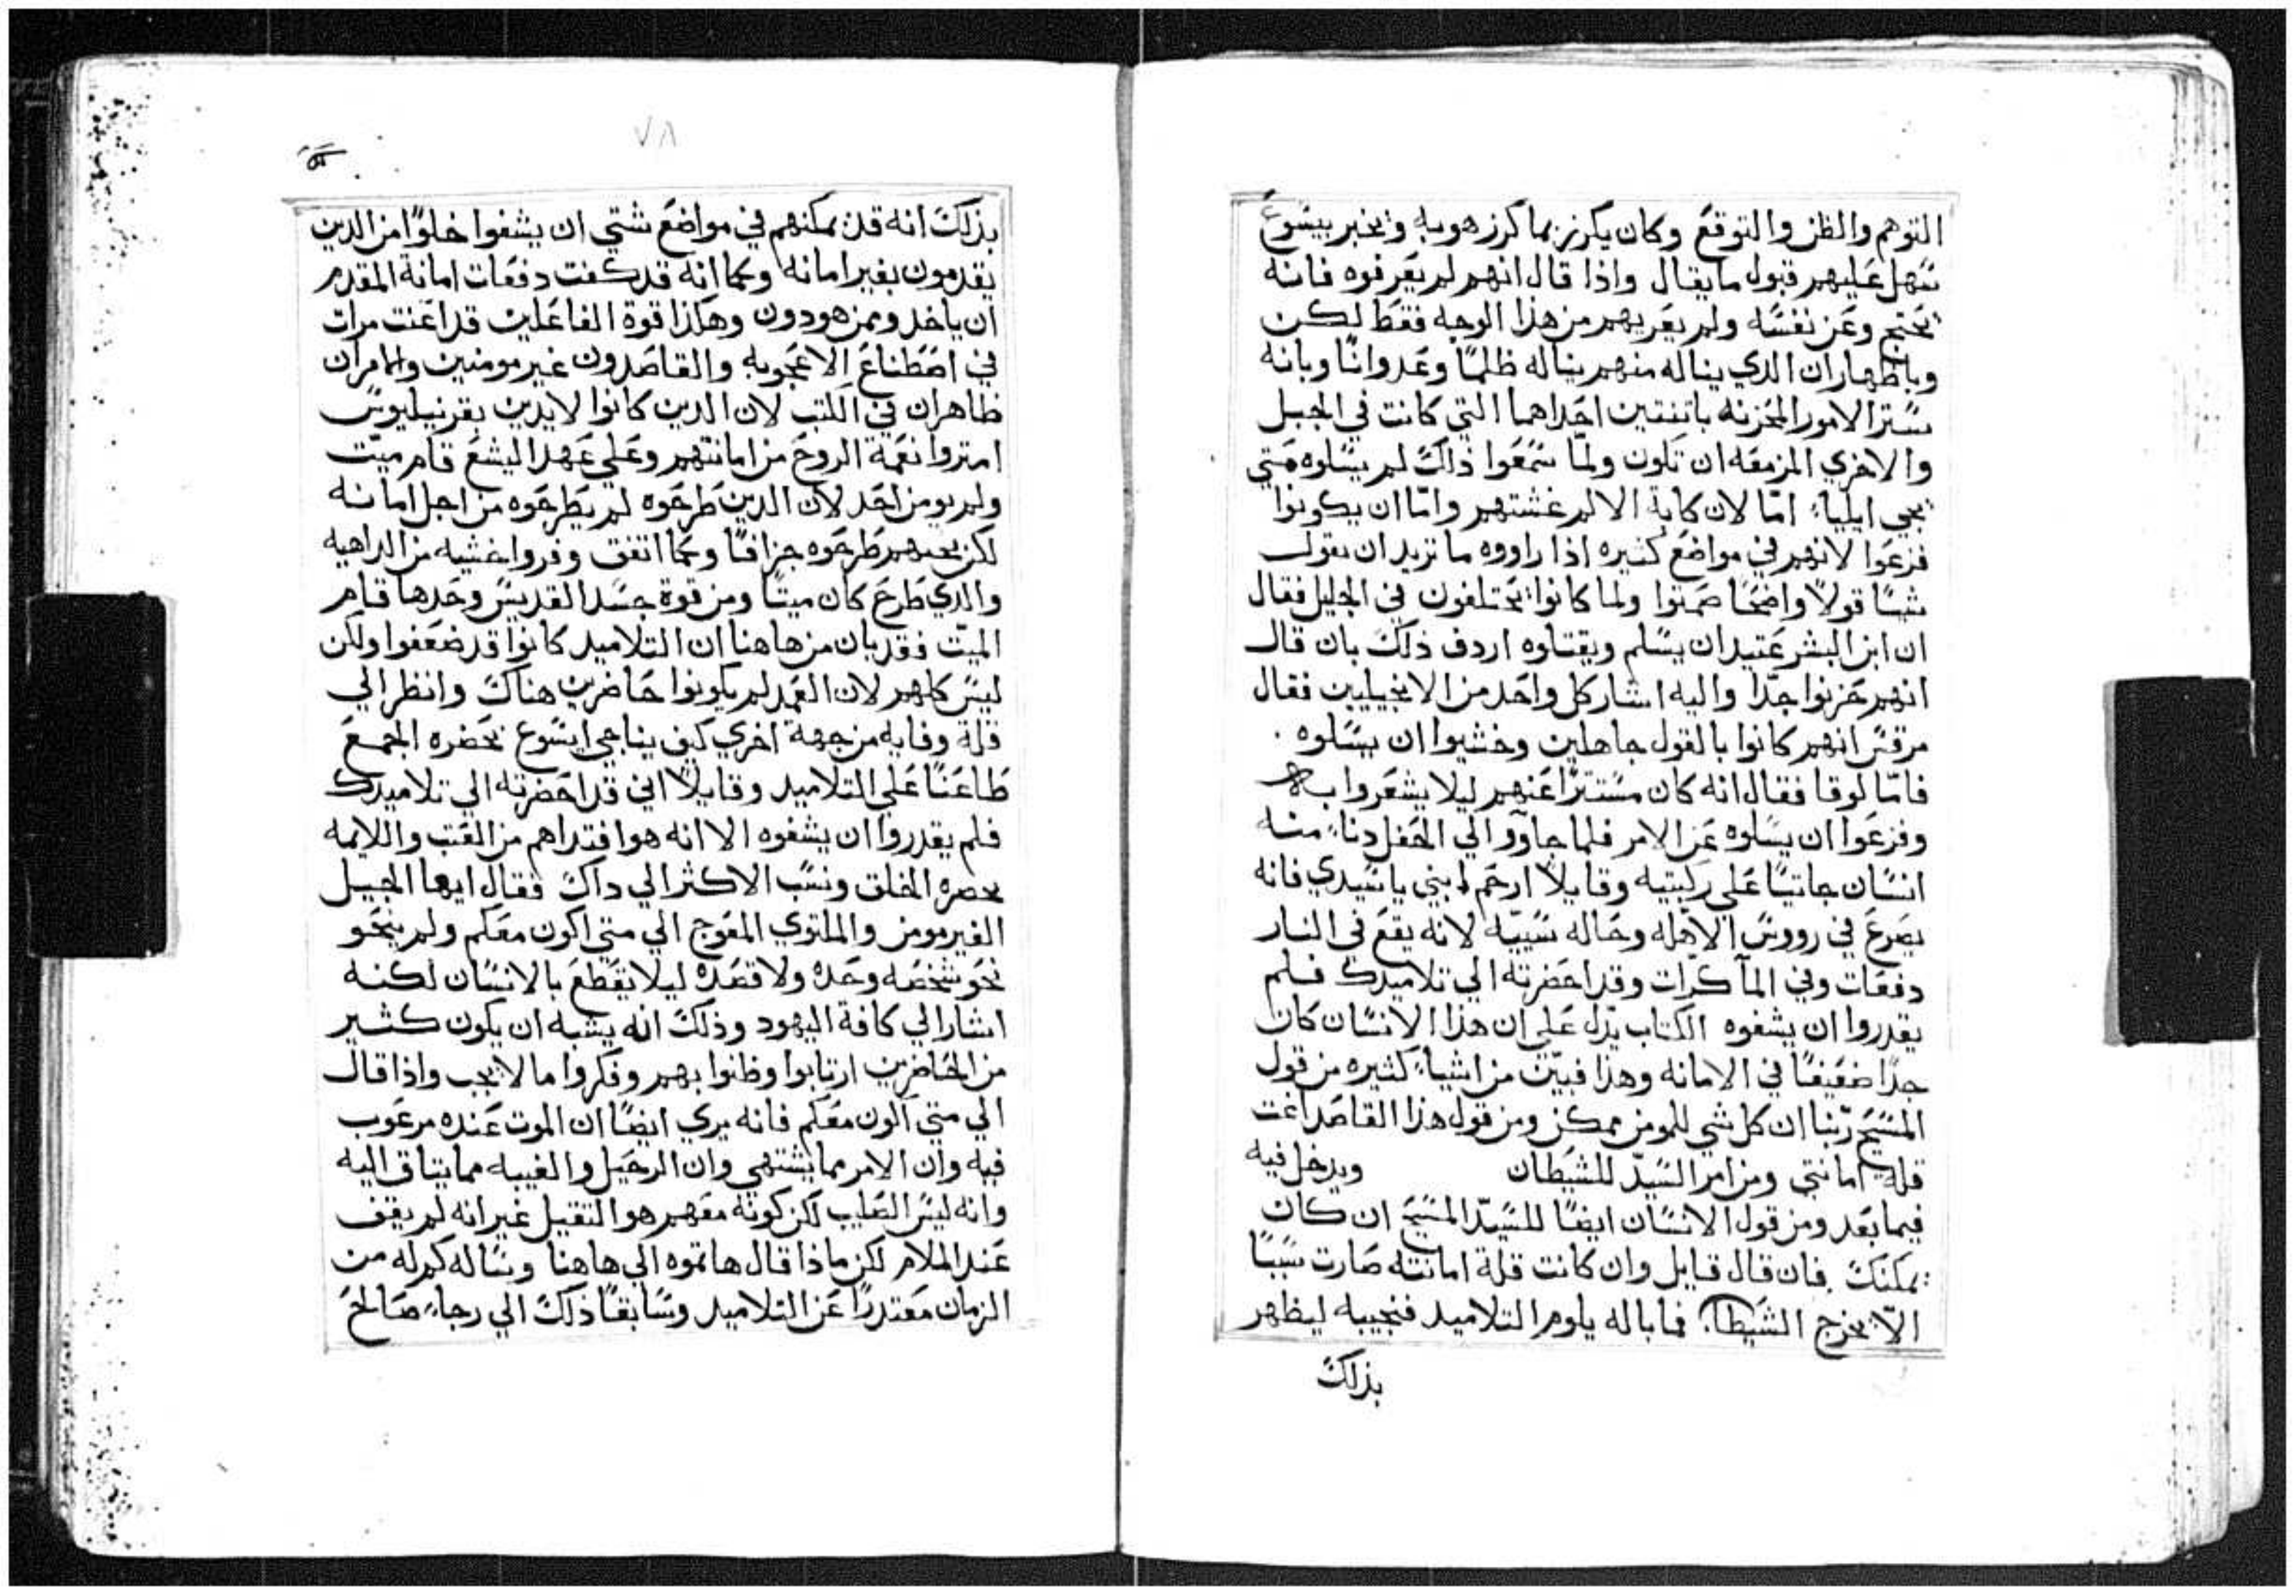 التوهم والظن والتوقع وكان يكرز بما كرز هو به ويخبر بيسوع
سهل عليهم قبول ما يقال واذا قال انهم لم يعرفوه فانه
يحتج وعن نفسه ولم يعريهم من هذا الوجه فقط لكن
وباظهار ان الدي يناله منهم يناله ظلمًا وعدوانًا وبانه
ستر الامور المحزنه باتنتين احداهما التي كانت في الجبل
والاخري المزمعه ان تكون ولمّا سمعوا ذاك لم يسلوه متي
يجي ايلياء امّا لان كابة الالم غشتهم وامّا ان يكونوا
فزعوا لانهم في مواضع كثيره اذا راووه ما تريد ان يقول
شيًا قولاً واضحًا صمتوا ولما كانوا يختلفون في الجليل فقال
ان ابن البشر عتيد ان يسلم ويقتلوه اردف ذلك بان قال
انهم حزنوا جدّا واليه اشار كل واحد من الانجيليين فقال
مرقس انهم كانوا بالقول جاهلين وخشيوا ان يسلوه .
فامّا لوقا فقال انه كان مستترًا عنهم ليلا يشعروا به
وفزعوا ان يسلوه عن الامر فلما جاووا الي المحفل دناء منه
انسان جاتيًا على ركبتيه وقايلاً ارحم ابني يا سيدي فانه
يصرع في رووس الاهله وحاله سيّيه لانه يقع في النار
دفعات وفي الما كرات وقد احضرته الي تلاميدك فلم
يقدروا ان يشفوه الكتاب يدل على ان هذا الانسان كان
جدًا ضعيفًا في الامانه وهذا فبيّن من اشياء كثيره من قول
المسيح ربّنا ان كل شي للمومن ممكن ومن قول هذا القاصد اغت
قلة امانتي ومن امر السيّد للشيطان ويدخل فيه
فيما بعد ومن قول الانسان ايضًا للسيّد المسيح ان كان
يمكنك . فان قال قايل وان كانت قلة امانته صارت سببًا
الاّ يخرج الشيطان فما باله يلوم التلاميد فنجيبه ليظهر
بذلك
٧٨
بذلك انه قد يمكنهم في مواضع شتي ان يشفوا خلوًا من الدين
يقدمون بغير امانه وكما انه قد كفت دفعات امانة المقدم
ان ياخد وممن هو دون وهكذا قوة الفاعلين قد اغنت مرات
في اصطناع الاعجوبه والقاصدون غير مومنين والامران
ظاهران في الكتب لان الدين كانوا لايدين بقرنيليوس
امتروا نعمة الروح من امانتهم وعلي عهد اليشع قام ميّت
ولم يومن احد لان الدين طرحوه لم يطرحوه من اجل امانه
لكن بحبنهم طرحوه جزافًا وكما اتفق وفروا خشيه من الداهيه
والدي طرح كان ميتًا ومن قوة جسد القديس وحدها قام
الميّت فقد بان من هاهنا ان التلاميد كانوا قد ضعفوا ولكن
ليس كلهم لان العمد لم يكونوا حاضرين هناك وانظر الي
قلة وفايه من جهة اخري كيف يناجي ايسوع بحضره الجمع
طاعنًا علي التلاميد وقايلاً اني قد احضرته الي تلاميدك
فلم يقدروا ان يشفوه الا انه هو افتداهم من العتب واللايمه
بحضره الخلق ونسب الاكثر الي داك فقال ايها الجيل
الغير مومن والملتوي المعوج الي متي اكون معكم ولم ينحو
نحو شخصه وحده ولا قصده ليلا يقطع بالانسان لكنه
اشار الي كافة اليهود وذلك انه يشبه ان يكون كثير
من الحاضرين ارتابوا وظنوا بهم وفكروا ما لا يجب واذا قال
الي متي اكون معكم فانه يري ايضًا ان الموت عنده مرغوب
فيه وان الامر مما يشتهي وان الرحيل والغيبه مما يتاق اليه
وانه ليس الصليب لكن كونه معهم هو التقيل غير انه لم يقف
عند الملام لكن ماذا قال هاتوه الي هاهنا وساله كم له من
الزمان معتدرًا عن التلاميد وسابقًا ذلك الي رجاء صالح